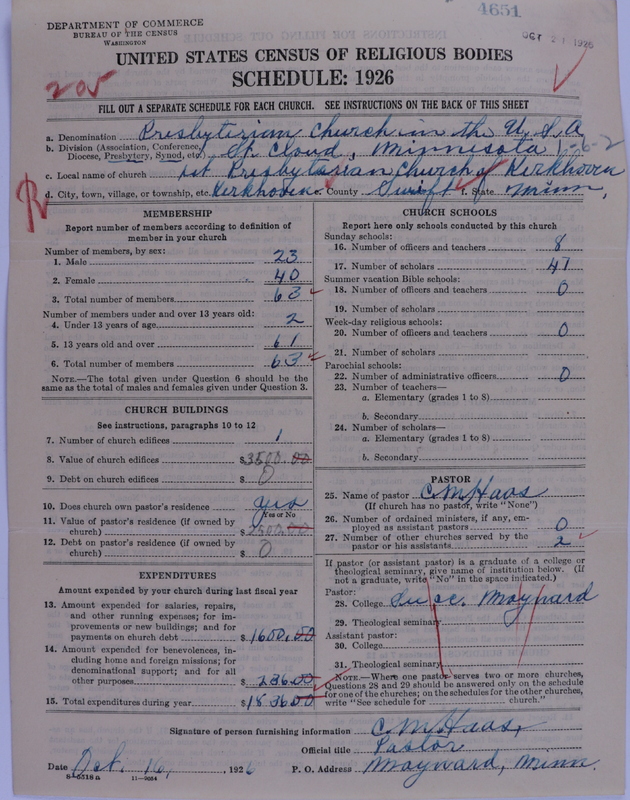 4651
DEPARTMENT OF COMMERCE
BUREAU OF THE CENSUS
WASHINGTON
OCT 21 1926
UNITED STATES CENSUS OF RELIGIOUS BODIES
SCHEDULE: 1926
205
FILL OUT A SEPARATE SCHEDULE FOR EACH CHURCH. SEE INSTRUCTIONS ON THE BACK OF THIS SHEET
a. Denomination Presbyterian Church in the U, S, A
b. Division (Association, Conference, Diocese, Presbytery, Synod, etc.) St Cloud, Minnesota 1-6-2
c. Local name of church 1st Presbyterian Church of Kerkhoven
d. City, town, village, or township, etc. Kerkhoven e. County Swift f. State Minn,
R
MEMBERSHIP
Report number of members according to definition of
member in your church
Number of members, by sex:
1. Male 23
2. Female 40
3. Total number of members 63
Number of members under and over 13 years old:
4. Under 13 years of age 2
5. 13 years old and over 61
6. Total number of members 63
NOTE.—The total given under Question 6 should be the
same as the total of males and females given under Question 3.
CHURCH BUILDINGS
See instructions, paragraphs 10 to 12
7. Number of church edifices 1
8. Value of church edifices $3500.00
9. Debt on church edifices $ 0
10. Does church own pastor's residence yes
Yes or No
11. Value of pastor's residence (if owned by
church) $2500.00
12. Debt on pastor's residence (if owned by
church) $ 0
EXPENDITURES
Amount expended by your church during last fiscal year
13. Amount expended for salaries, repairs,
and other running expenses; for im-
provements or new buildings; and for
payments on church debt $1600.00
14. Amount expended for benevolences, in-
cluding home and foreign missions; for
denominational support; and for all
other purposes $ 236.00
15. Total expenditures during year $1836.00
CHURCH SCHOOLS
Report here only schools conducted by this church
Sunday schools:
16. Number of officers and teachers 8
17. Number of scholars 47
Summer vacation Bible schools:
18. Number of officers and teachers 0
19. Number of scholars
Week-day religious schools:
20. Number of officers and teachers 0
21. Number of scholars
Parochial schools:
22. Number of administrative officers 0
23. Number of teachers—
a. Elementary (grades 1 to 8)
b. Secondary
24. Number of scholars—
a. Elementary (grades 1 to 8)
b. Secondary
PASTOR
25. Name of pastor C M Haas
(If church has no pastor, write "None")
26. Number of ordained ministers, if any, em-
ployed as assistant pastors 0
27. Number of other churches served by the
pastor or his assistants 2
If pastor (or assistant pastor) is a graduate of a college or
theological seminary, give name of institution below. (If
not a graduate, write "No" in the space indicated.)
Pastor:
28. College Maynard
29. Theological seminary
Assistant pastor:
30. College
31. Theological seminary
NOTE.—Where one pastor serves two or more churches,
Questions 28 and 29 should be answered only on the schedule
for one of the churches; on the schedules for the other churches,
write "See schedule for church."
Signature of person furnishing information C. M. Haas,
Official title Pastor
Date Oct. 16, 1926 P. O. Address Maynard, Minn.
8-5518 a 11-9084